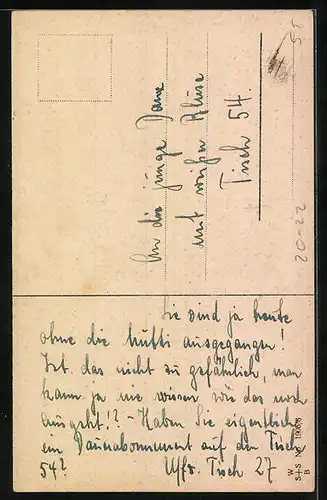 An die junge Dame
mit weißer Bluse
Tisch 54.
20-22
Sie sind ja heute
ohne die Mutti ausgegangen!
Ist das nicht zu gefährlich, man
kann ja nie wissen wie das noch
ausgeht!? - Haben Sie eigentlich
ein Dauerabonnement auf den Tisch
54? Uffz. Tisch 27
W
S+S
B